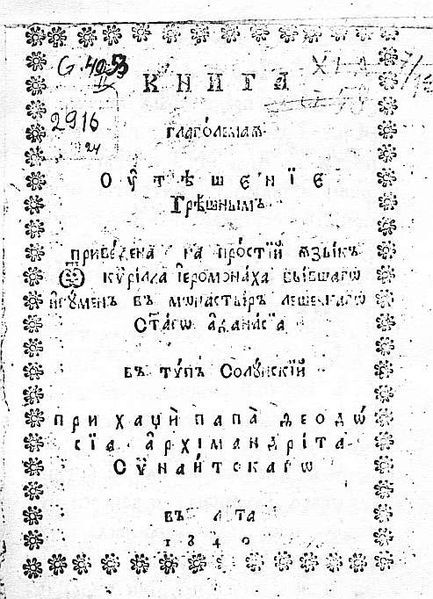 G. 4053
IV
2916
24
КНИГА
глаго́лемаѧ
Оу҆тѣше́нїе
Грѣ́шнымъ
приве́дена на про́стїй ѧзы́къ
Ѿ кѷрі́лла і҆еромона́ха бы́вшагѡ
и҆гꙋ́менъ въ мѡнасты́ръ лешо́скагѡ
Ст҃а́гѡ а҆ѳана́сїа
въ тѵ́пъ Солꙋ́нскїй
при хаџи̑ папа̀ ѳеодѡ́
сїа а҆рхїмандрі́та
Сѷнаи́тскагѡ
въ лѣ́та
1840